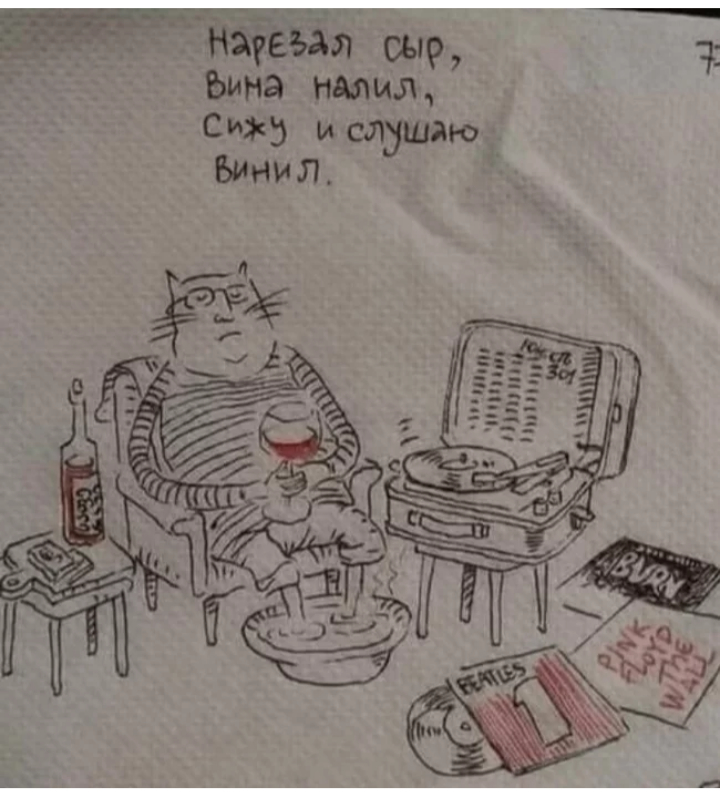 Нарезал сыр,
вина налил,
сижу и слушаю
винил.
301
BURN
PINK
FLOYD
THE
WALL
BEATLES
1